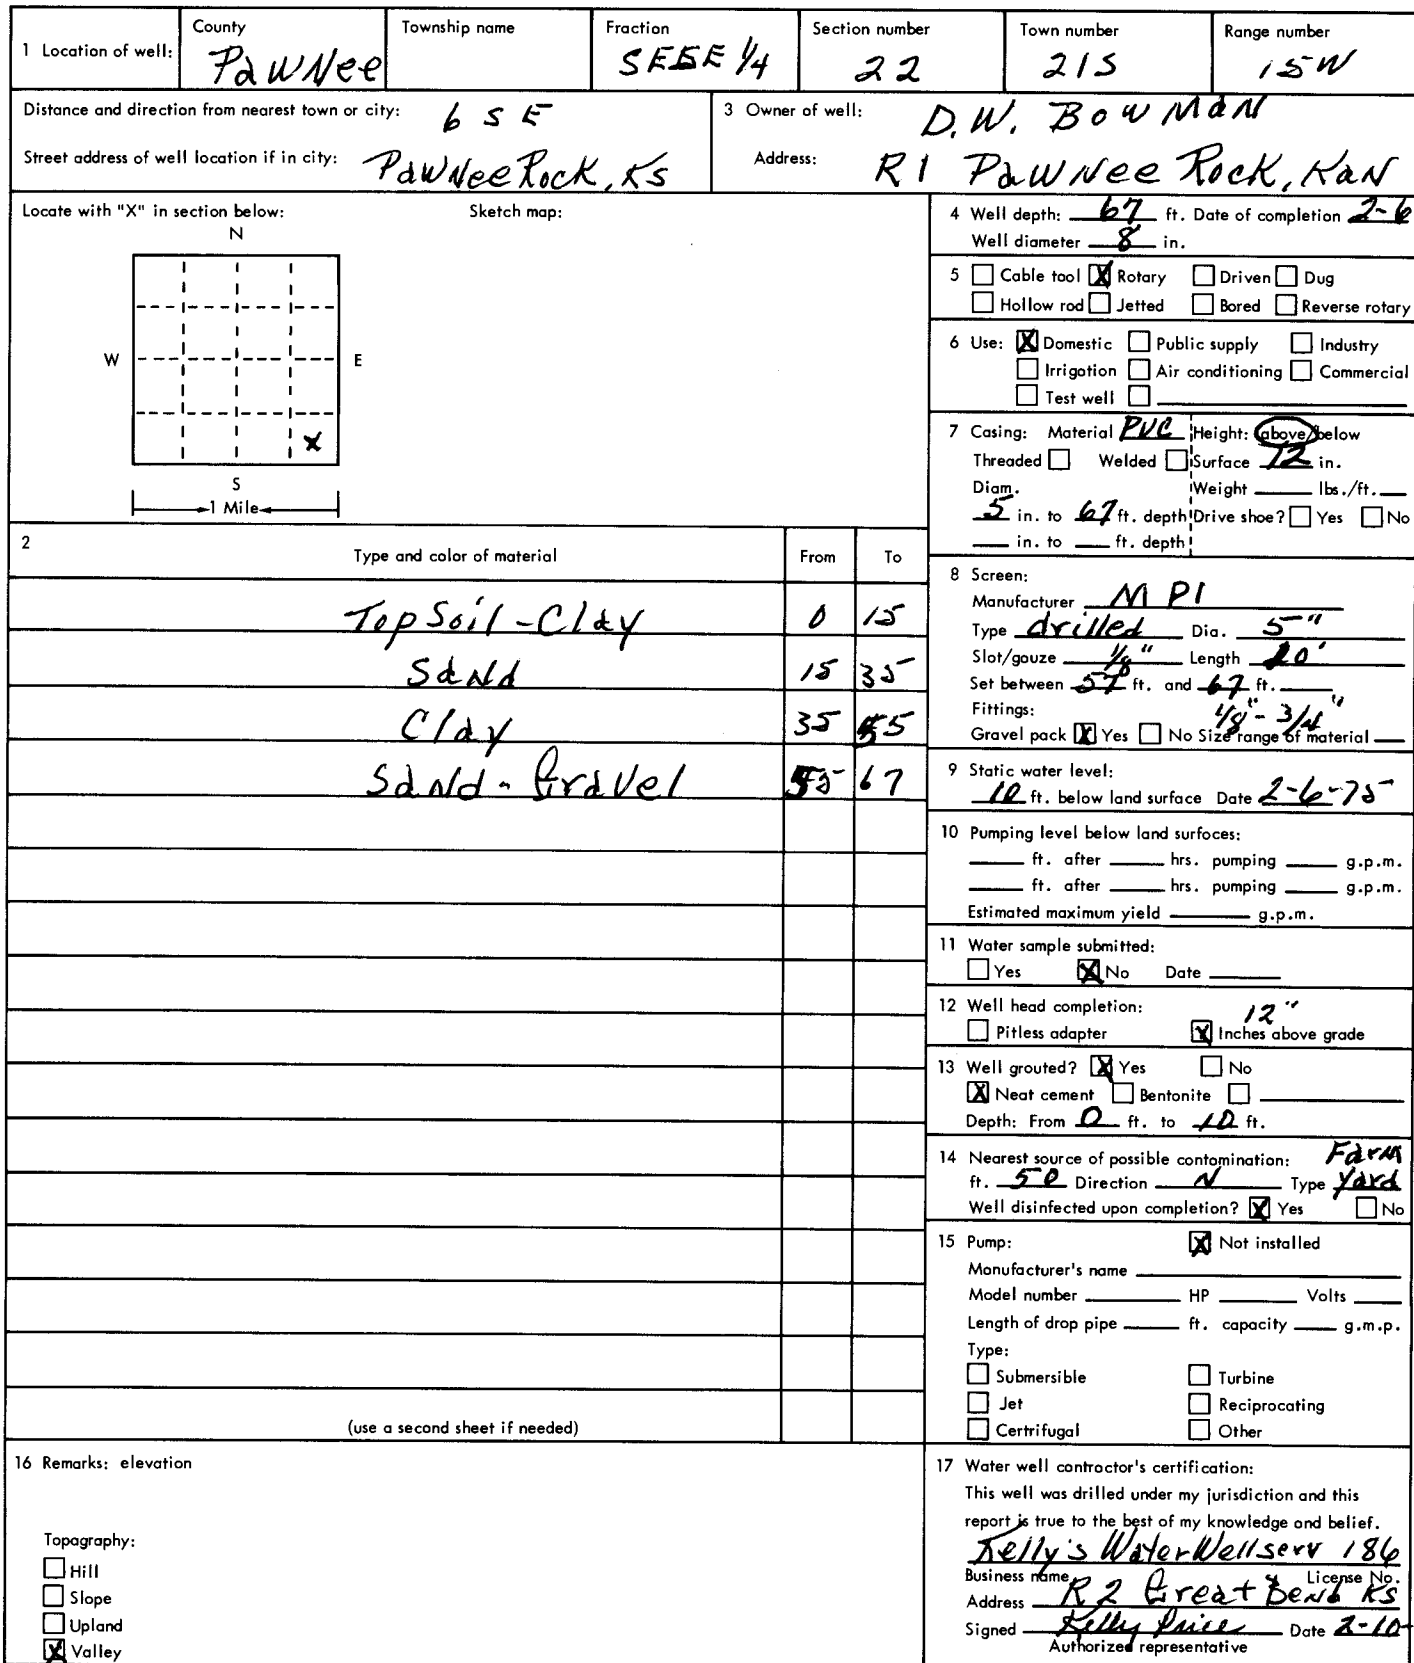 1 Location of well: County Township name Fraction Section number Town number Range number
Pawnee SE SE 1/4 22 21S 15W
Distance and direction from nearest town or city: 6 S E
Street address of well location if in city: Pawnee Rock, Ks
3 Owner of well: D.W. Bowman
Address: R 1 Pawnee Rock, Kan
Locate with "X" in section below: Sketch map:
N
W E
X
S
1 Mile
2 Type and color of material From To
Top Soil - Clay 0 15
Sand 15 35
Clay 35 55
Sand - Gravel 55 67
(use a second sheet if needed)
4 Well depth: 67 ft. Date of completion 2-6
Well diameter 8 in.
5 ☐ Cable tool ☒ Rotary ☐ Driven ☐ Dug
☐ Hollow rod ☐ Jetted ☐ Bored ☐ Reverse rotary
6 Use: ☒ Domestic ☐ Public supply ☐ Industry
☐ Irrigation ☐ Air conditioning ☐ Commercial
☐ Test well ☐
7 Casing: Material PVC Height: above/below
Threaded ☐ Welded ☐ Surface 12 in.
Diam. Weight ___ lbs./ft. ___
5 in. to 67 ft. depth Drive shoe? ☐ Yes ☐ No
___ in. to ___ ft. depth
8 Screen:
Manufacturer M PI
Type drilled Dia. 5"
Slot/gouze 1/8" Length 10'
Set between 57 ft. and 67 ft. ___
Fittings: 1/8" - 3/4"
Gravel pack ☒ Yes ☐ No Size range of material ___
9 Static water level:
10 ft. below land surface Date 2-6-75
10 Pumping level below land surfoces:
___ ft. after ___ hrs. pumping ___ g.p.m.
___ ft. after ___ hrs. pumping ___ g.p.m.
Estimated maximum yield ___ g.p.m.
11 Water sample submitted:
☐ Yes ☒ No Date ___
12 Well head completion: 12"
☐ Pitless adapter ☒ Inches above grade
13 Well grouted? ☒ Yes ☐ No
☒ Neat cement ☐ Bentonite ☐ ___
Depth: From 0 ft. to 10 ft.
14 Nearest source of possible contomination: Farm
ft. 50 Direction N Type Yard
Well disinfected upon completion? ☒ Yes ☐ No
15 Pump: ☒ Not installed
Monufacturer's name ___
Model number ___ HP ___ Volts ___
Length of drop pipe ___ ft. capacity ___ g.m.p.
Type:
☐ Submersible ☐ Turbine
☐ Jet ☐ Reciprocating
☐ Certrifugal ☐ Other
16 Remarks: elevation
Topagraphy:
☐ Hill
☐ Slope
☐ Upland
☒ Valley
17 Water well contractor's certification:
This well was drilled under my jurisdiction and this
report is true to the best of my knowledge and belief.
Kelly's Water Well serv 186
Business name License No.
Address R 2 Great Bend Ks
Signed Kelly Price Date 2-10-
Authorized representative